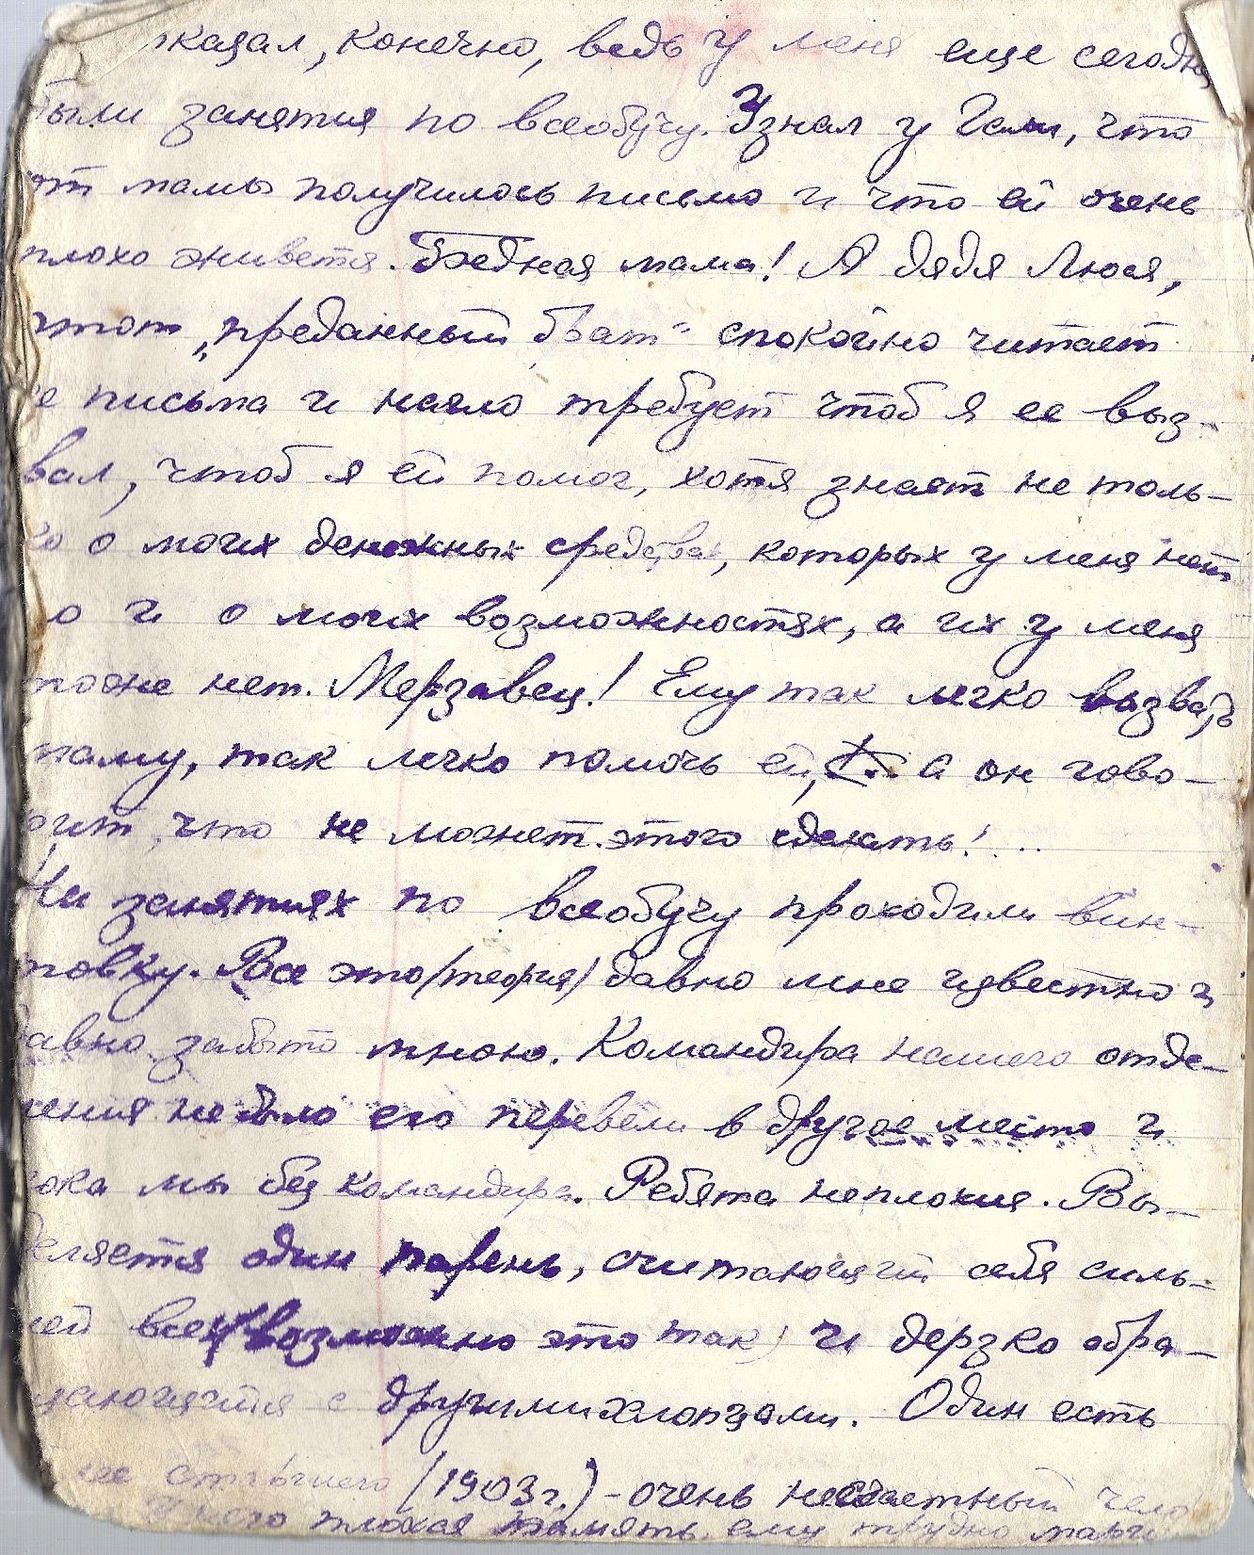 казал, конечно, ведь у меня еще сегодня
были занятия по всеобучу. Узнал у Гали, что
от мамы получилось письмо и что ей очень
плохо живется. Бедная мама! А дядя Люся,
этот „преданный брат“ спокойно читает
ее письма и нагло требует чтоб я ее выз-
вал, чтоб я ей помог, хотя знает не толь-
ко о моих денежных средствах, которых у меня нет
но и о моих возможностях, а их у меня
тоже нет. Мерзавец! Ему так легко вызвать
маму, так легко помочь ей, а он гово-
рит, что не может этого сделать!...
На занятиях по всеобучу проходили вин-
товку. Все это (теория) давно мне известно и
давно забыто мною. Командира нашего отде-
ления не было его перевели в другое место и
пока мы без командира. Ребята неплохие. Вы-
деляется один парень, считающий себя силь-
ней всех (возможно это так) и дерзко обра-
щающийся с другими хлопцами. Один есть
старшего (1903 г.) - очень несчастный чело
плохая память, ему трудно